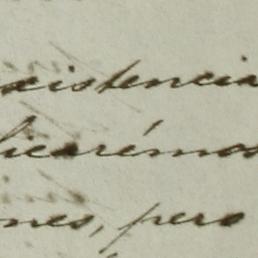 xistencia
licarémos
nes, pero